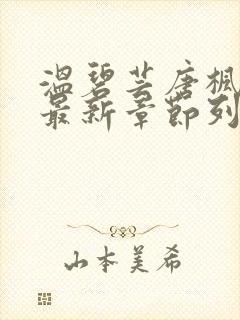 温碧芸唐枫
最新章节列
山本美希